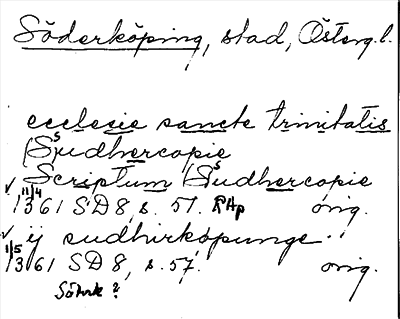 Söderköping, stad, Österg.l.
ecclesie sancte trinitatis
(S)sudhercopie
Scriptum (S)sudhercopie
11/4 1361 SD 8, s. 51. RAp orig.
ij sudhirköpunge
1/5 1361 SD 8, s. 57. orig.
Söhrk ?